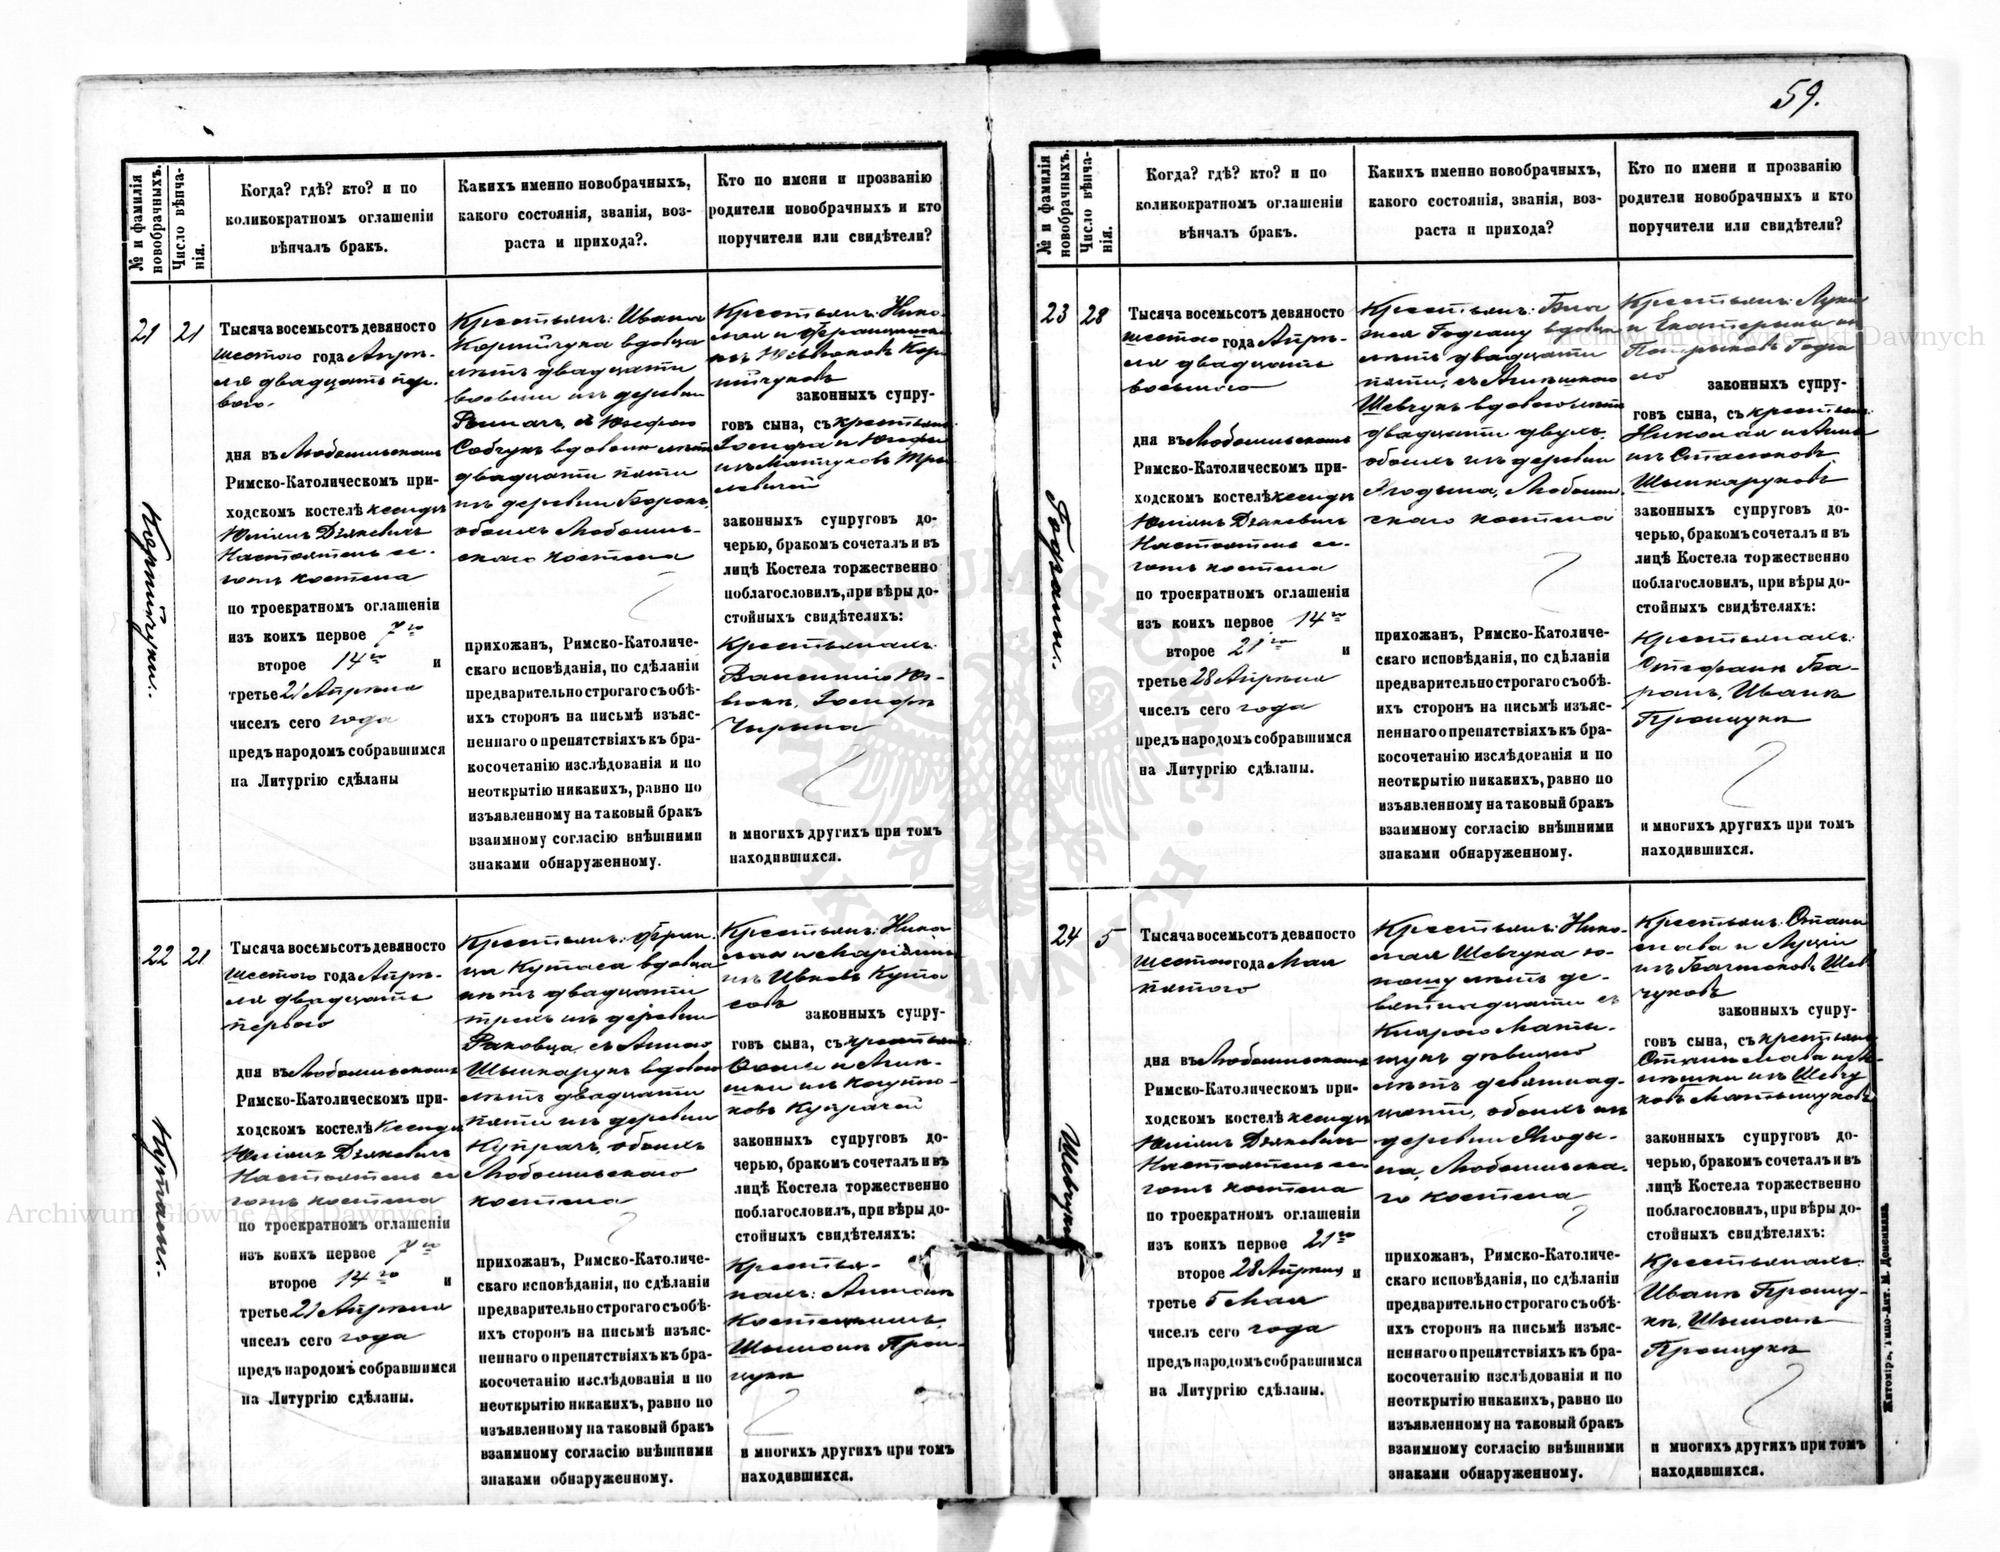 59.
№ и фамилія новобрачныхъ.
Число вѣнчанія.
Когда? гдѣ? кто? и по
коликократном оглашеніи
вѣнчалъ бракъ.
Какихъ именно новобрачныхъ,
какого состоянія, званія, воз-
раста и прихода?.
Кто по имени и прозванію
родители новобрачныхъ и кто
поручители или свидѣтели?
21
21
Корнійчуки.
Тысяча восемьсотъ девяносто
шестого года Апрѣ-
ля двадцать пер-
вого.
дня въ Любомльскомъ
Римско-Католическомъ при-
ходскомъ костелѣ ксендзъ
Юліянъ Дзяковичъ
Настоятель се-
гожъ костела
по троекратномъ оглашеніи
изъ коихъ первое 7го
второе 14го и
третье 21 Апрѣля
чиселъ сего года
предъ народомъ собравшимся
на Литургію сдѣланы
Крестьян: Ивана
вдовца
лѣтъ двадцати
изъ деревни
вдовою лѣтъ
двадцати пяти
изъ деревни
обоихъ Любомль-
ского костела
прихожан, Римско-Католиче-
скаго исповѣданія, по сдѣланіи
предварительно строгаго съ обѣ-
ихъ сторонъ на письмѣ изъяс-
неннаго о препятствіяхъ къ бра-
косочетанію изслѣдованія и по
неоткрытію никакихъ, равно по
изъявленному на таковый бракъ
взаимному согласію внѣшними
знаками обнаруженному.
Крестьян: Нико-
лая и
законныхъ супру-
говъ сына, съ крестьян:
Іосифа и
законныхъ супруговъ до-
черью, бракомъ сочеталъ и въ
лицѣ Костела торжественно
поблагословил, при вѣры до-
стойныхъ свидѣтеляхъ:
Крестьянахъ:
Іосифъ
и многихъ другихъ при томъ
находившихся.
22
21
Кутасы.
Тысяча восемьсотъ девяносто
шестого года Апрѣ-
ля двадцать
первого
дня въ Любомльскомъ
Римско-Католическомъ при-
ходскомъ костелѣ Ксендзъ
Юліянъ Дзяковичъ
Настоятель се-
гожъ костела
по троекратномъ оглашеніи
изъ коихъ первое 7го
второе 14го и
третье 21 Апрѣля
чиселъ сего года
предъ народомъ собравшимся
на Литургію сдѣланы.
Крестьян: Фран-
ца Кутаса вдовца
лѣтъ двадцати
трехъ изъ деревни
Раковца, съ Анною
Шышкарукъ вдовою
лѣтъ двадцати
пяти изъ деревни
обоихъ
Любомльского
костела
прихожан, Римско-Католиче-
скаго исповѣданія, по сдѣланіи
предварительно строгаго съ обѣ-
ихъ сторонъ на письмѣ изъяс-
неннаго о препятствіяхъ къ бра-
косочетанію изслѣдованія и по
неоткрытію никакихъ, равно по
изъявленному на таковый бракъ
взаимному согласію внѣшними
знаками обнаруженному.
Крестьян: Нико
лая и
изъ Ивковъ Кута
совъ
законныхъ супру-
говъ сына, съ крестьян:
законныхъ супруговъ до-
черью, бракомъ сочеталъ и въ
лицѣ Костела торжественно
поблагословил, при вѣры до-
стойныхъ свидѣтеляхъ:
Крестья-
нахъ: Антонъ
Шымонъ Прон-
чукъ
и многихъ другихъ при томъ
находившихся.
№ и фамилія новобрачныхъ.
Число вѣнчанія.
Когда? гдѣ? кто? и по
коликократном оглашеніи
вѣнчалъ бракъ.
Какихъ именно новобрачныхъ,
какого состоянія, званія, воз-
раста и прихода?
Кто по имени и прозванію
родители новобрачныхъ и кто
поручители или свидѣтели?
23
28
Тысяча восемьсотъ девяносто
шестого года Апрѣ-
ля двадцать
восьмого
дня въ Любомльскомъ
Римско-Католическомъ при-
ходскомъ костелѣ ксендзъ
Юліянъ Дзяковичъ
Настоятель се-
гожъ костела
по троекратномъ оглашеніи
изъ коихъ первое 14го
второе 21го и
третье 28 Апрѣля
чиселъ сего года
предъ народомъ собравшимся
на Литургію сдѣланы.
Крестьян: Бла
жея вдовца
лѣтъ двадцати
пяти, съ Агнѣшкою
Шевчукъ вдовою лѣтъ
двадцати двухъ,
обоихъ изъ деревни
Ягодына, Любомль-
ского костела
прихожан, Римско-Католиче-
скаго исповѣданія, по сдѣланіи
предварительно строгаго съ обѣ-
ихъ сторонъ на письмѣ изъяс-
неннаго о препятствіяхъ къ бра-
косочетанію изслѣдованія и по
неоткрытію никакихъ, равно по
изъявленному на таковый бракъ
взаимному согласію внѣшними
знаками обнаруженному.
Крестьян: Луки
и Екатерины изъ
законныхъ супру-
говъ сына, съ крестьян:
Николая и Анны
изъ Стасюковъ
Шышкаруковъ
законныхъ супруговъ до-
черью, бракомъ сочеталъ и въ
лицѣ Костела торжественно
поблагословил, при вѣры до-
стойныхъ свидѣтеляхъ:
Крестьянахъ:
Стефанъ Ба-
ранъ, Иванъ
Прончукъ
и многихъ другихъ при томъ
находившихся.
24
5
Шевчуки.
Тысяча восемьсотъ девяносто
шестого года Мая
пятого
дня въ Любомльскомъ
Римско-Католическомъ при-
ходскомъ костелѣ ксендзъ
Юліянъ Дзяковичъ
Настоятель се-
гожъ костела
по троекратномъ оглашеніи
изъ коихъ первое 21го
второе 28 Апрѣля и
третье 5 Мая
чиселъ сего года
предъ народомъ собравшимся
на Литургію сдѣланы.
Крестьян: Нико-
лая Шевчука ю-
ношу лѣтъ де-
вятнадцати съ
Кларою Маты-
щукъ дѣвицею
лѣтъ девятнад-
цати, обоихъ изъ
деревни Ягоды-
на, Любомльска-
го костела
прихожан, Римско-Католиче-
скаго исповѣданія, по сдѣланіи
предварительно строгаго съ обѣ-
ихъ сторонъ на письмѣ изъяс-
неннаго о препятствіяхъ къ бра-
косочетанію изслѣдованія и по
неоткрытію никакихъ, равно по
изъявленному на таковый бракъ
взаимному согласію внѣшними
знаками обнаруженному.
Крестьян: Стани
слава и Луціи
изъ Шев
чуковъ
законныхъ супру-
говъ сына, съ крестьян:
Станислава и А-
гнѣшки изъ Шевчу
ковъ Матыщуковъ
законныхъ супруговъ до-
черью, бракомъ сочеталъ и въ
лицѣ Костела торжественно
поблагословил, при вѣры до-
стойныхъ свидѣтеляхъ:
Крестьянахъ:
Иванъ Прончу-
къ, Шымонъ
Прончукъ
и многихъ другихъ при томъ
находившихся.
Житоміръ, Типо-Лит. М. Дененмана.
Archiwum Główne Akt Dawnych
Archiwum Główne Akt Dawnych
ARCHIWUM GŁÓWNE AKT DAWNYCH